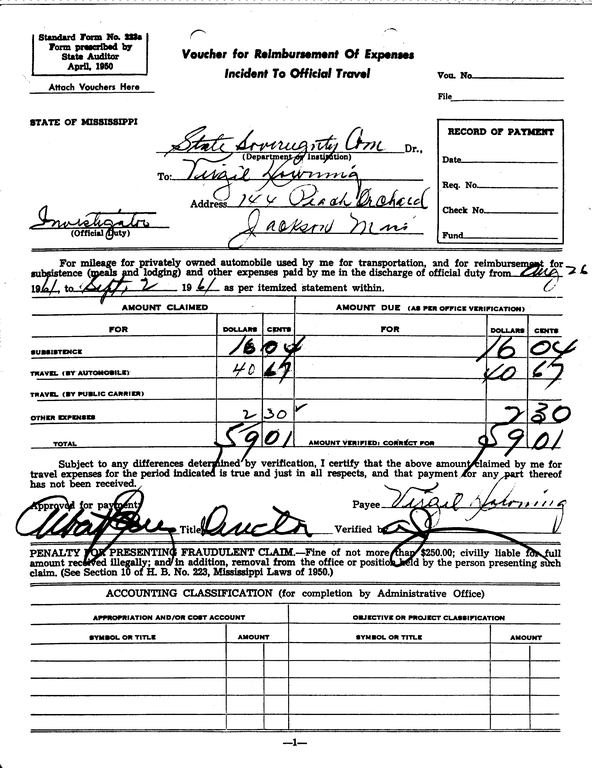 Standard Form No. 222a
Form prescribed by
State Auditor
April, 1950
Attach Vouchers Here
Voucher for Reimbursement Of Expenses
Incident To Official Travel
Vou. No.
File
STATE OF MISSISSIPPI
State Sovereignty Com Dr.,
(Department or Institution)
To: Virgil Downing
Address 144 Peach Orchard
Jackson Miss
Investigator
(Official Duty)
RECORD OF PAYMENT
Date
Req. No.
Check No.
Fund
For mileage for privately owned automobile used by me for transportation, and for reimbursement for
subsistence (meals and lodging) and other expenses paid by me in the discharge of official duty from Aug 26
1961, to Sept. 2 1961 as per itemized statement within.
AMOUNT CLAIMED AMOUNT DUE (AS PER OFFICE VERIFICATION)
FOR DOLLARS CENTS FOR DOLLARS CENTS
SUBSISTENCE 16 04 16 04
TRAVEL (BY AUTOMOBILE) 40 67 40 67
TRAVEL (BY PUBLIC CARRIER)
OTHER EXPENSES 2 30 2 30
TOTAL 59 01 AMOUNT VERIFIED: CORRECT FOR 59 01
Subject to any differences determined by verification, I certify that the above amount claimed by me for
travel expenses for the period indicated is true and just in all respects, and that payment for any part thereof
has not been received.
Approved for payment: Payee Virgil Downing
Title Director Verified by
PENALTY FOR PRESENTING FRAUDULENT CLAIM.—Fine of not more than $250.00; civilly liable for full
amount received illegally; and in addition, removal from the office or position held by the person presenting such
claim. (See Section 10 of H. B. No. 223, Mississippi Laws of 1950.)
ACCOUNTING CLASSIFICATION (for completion by Administrative Office)
APPROPRIATION AND/OR COST ACCOUNT OBJECTIVE OR PROJECT CLASSIFICATION
SYMBOL OR TITLE AMOUNT SYMBOL OR TITLE AMOUNT
—1—